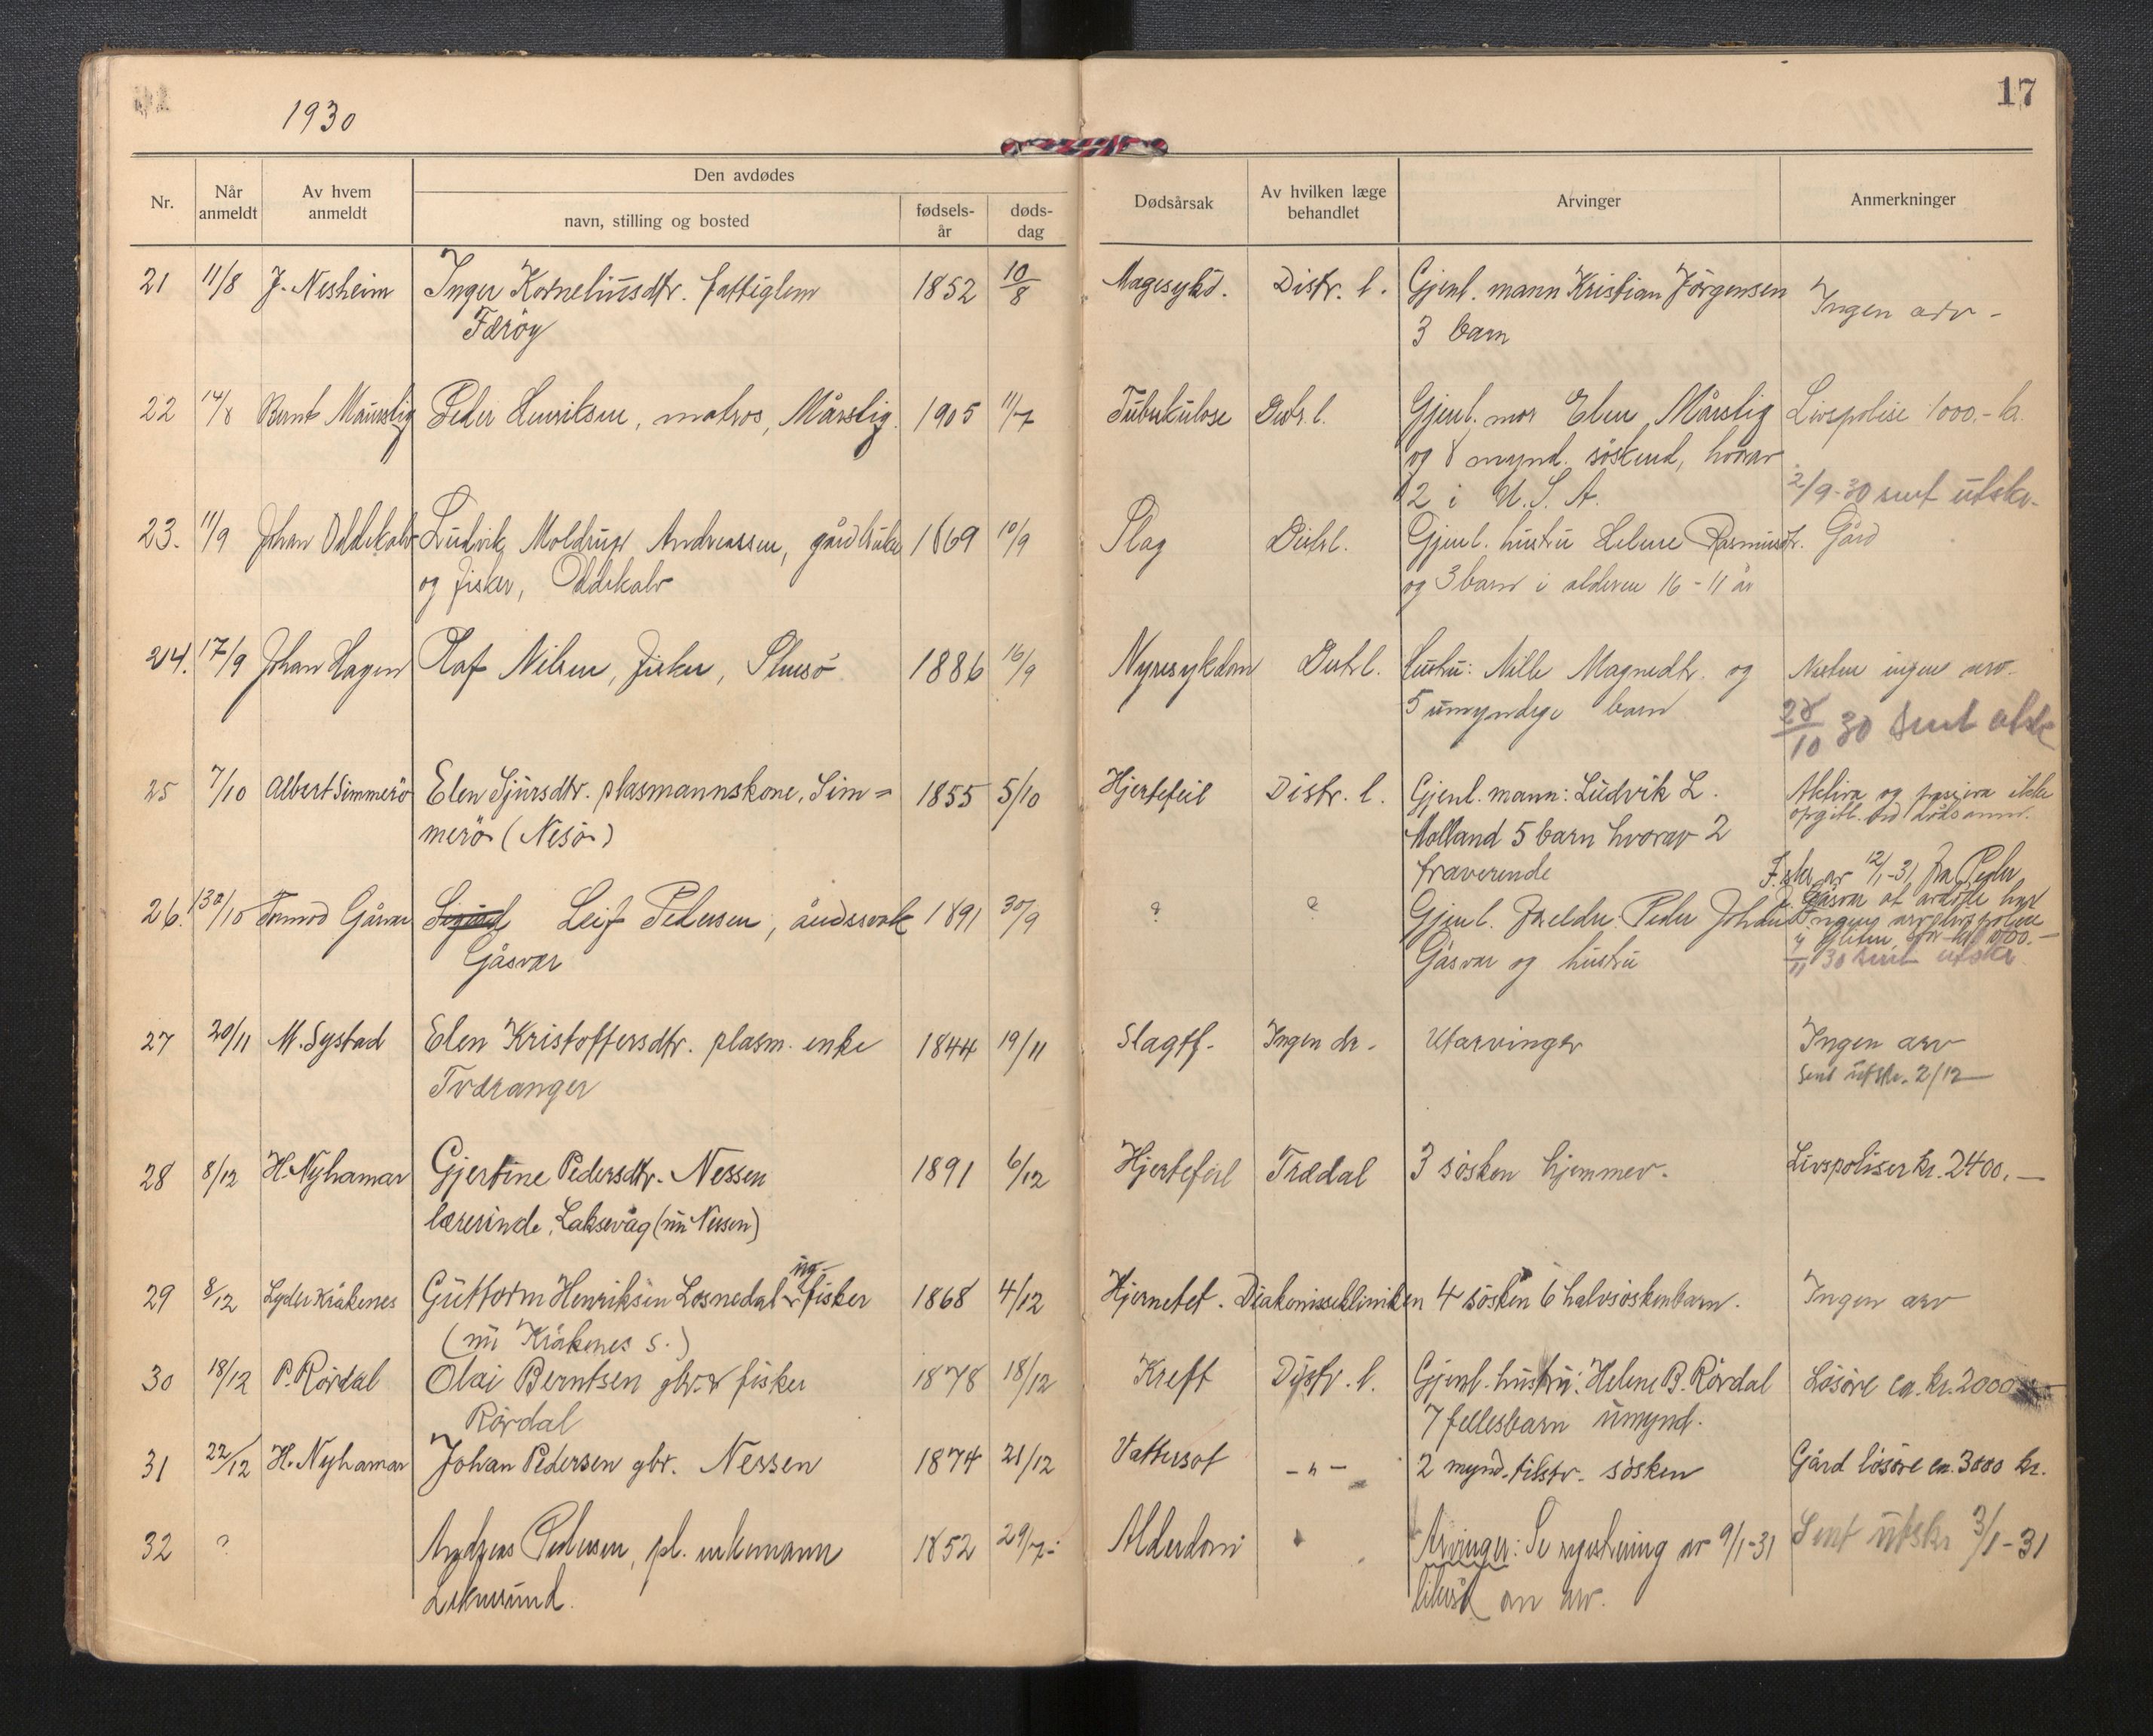 1930
17
Nr.
Når anmeldt
Av hvem anmeldt
Den avdødes
navn, stilling og bosted
fødsels-år
døds-dag
Dødsårsak
Av hvilken læge behandlet
Arvinger
Anmerkninger
21 11/8 J. Nesheim Inger Korneliusdtr. fattiglem 1852 10/8 Magesykd. Distr. l. Gjenl. mann Kristian Jörgensen Ingen arv -
Færöy 3 barn
22 14/8 Bernt Maurstig Peder Henriksen, matros, Mårstig. 1905 11/7 Tuberkulose Distr. l. Gjenl. mor Elen Mårstig Livspolise 1000.- kr.
og 8 mynd. söskend, hvorav
2 i U. S. A. 2/9-30 sent utskr.
23. 11/9 Johan Oddekalv Ludvik Moldrup Andreassen, gårdbruker 1869 10/9 Slag Distr l. Gjenl. hustru Helene Rasmusdtr. Gård
og fisker, Oddekalv og 3 barn i alderen 16 - 11 år
24. 17/9 Johan Hagen Olaf Nilsen, fisker, 1886 16/9 Nyresykdom Distr l. Hustru: Nille Magnedtr. og Nesten ingen arv.
5 umyndige barn 28/10 30 Sent utskr
25 7/10 Albert Simmerö Elen Sjursdtr. plasmannskone, Sim= 1855 5/10 Hjertefeil Distr. l. Gjenl. mann: Ludvik L. Aktiva og passiva ikke
merö (Nesö) Molland 5 barn hvorav 2 opgitt. ved dødsanm.
fraverende
F. skr. av 12/1-31 fra Peder
26. /10 Tormod Gåsvær Sigurd Leif Pedersen, åndssvak 1891 30/9 ? ? Gjenl. Foreldre Peder Johan Gåsvær at avdöde har
Gåsvær Gåsvær og hustru ingen arv
11 30 sent utskr
27 20/11 M. Systad Elen Kristoffersdtr. plasm. enke 1844 19/11 Slagtf. Ingen dr. Utarvinger Ingen arv
Tværanger sent utskr. 2/12
28 8/12 H. Nyhamar Gjertine Pedersdtr. Nessen 1891 6/12 Hjertefeil Trædal 3 sösken hjemmev. Livspoliser kr. 2400.-
lærerinde, Laksevåg (nu Nessen)
29 8/12 Lyder Kråkenes Guttorm Henriksen Losnedal ug. fisker 1868 4/12 Hjernetet. Diakonisseklinikken 4 sösken 6 halvsöskenbarn. Ingen arv
(nu Kråkenes s.)
30 18/12 P. Rördal Olai Berntsen gbr. & fisker 1878 18/12 Kreft Distr. l. Gjenl. hustru: Helene B. Rördal Lösöre ca. kr. 2000
Rördal 7 fellesbarn umynd.
31 22/12 H. Nyhamar Johan Pedersen gbr. Nessen 1874 21/12 Vattersot -"- 2 mynd. tilstv. sösken Gård lösöre ca. 3000 kr.
32 ? Andreas Pedersen, pl. enkemann 1852 29/7 Alderdom Arvinger: Se registrering av 9/1-31 Sent utskr 3/1-31
arv.